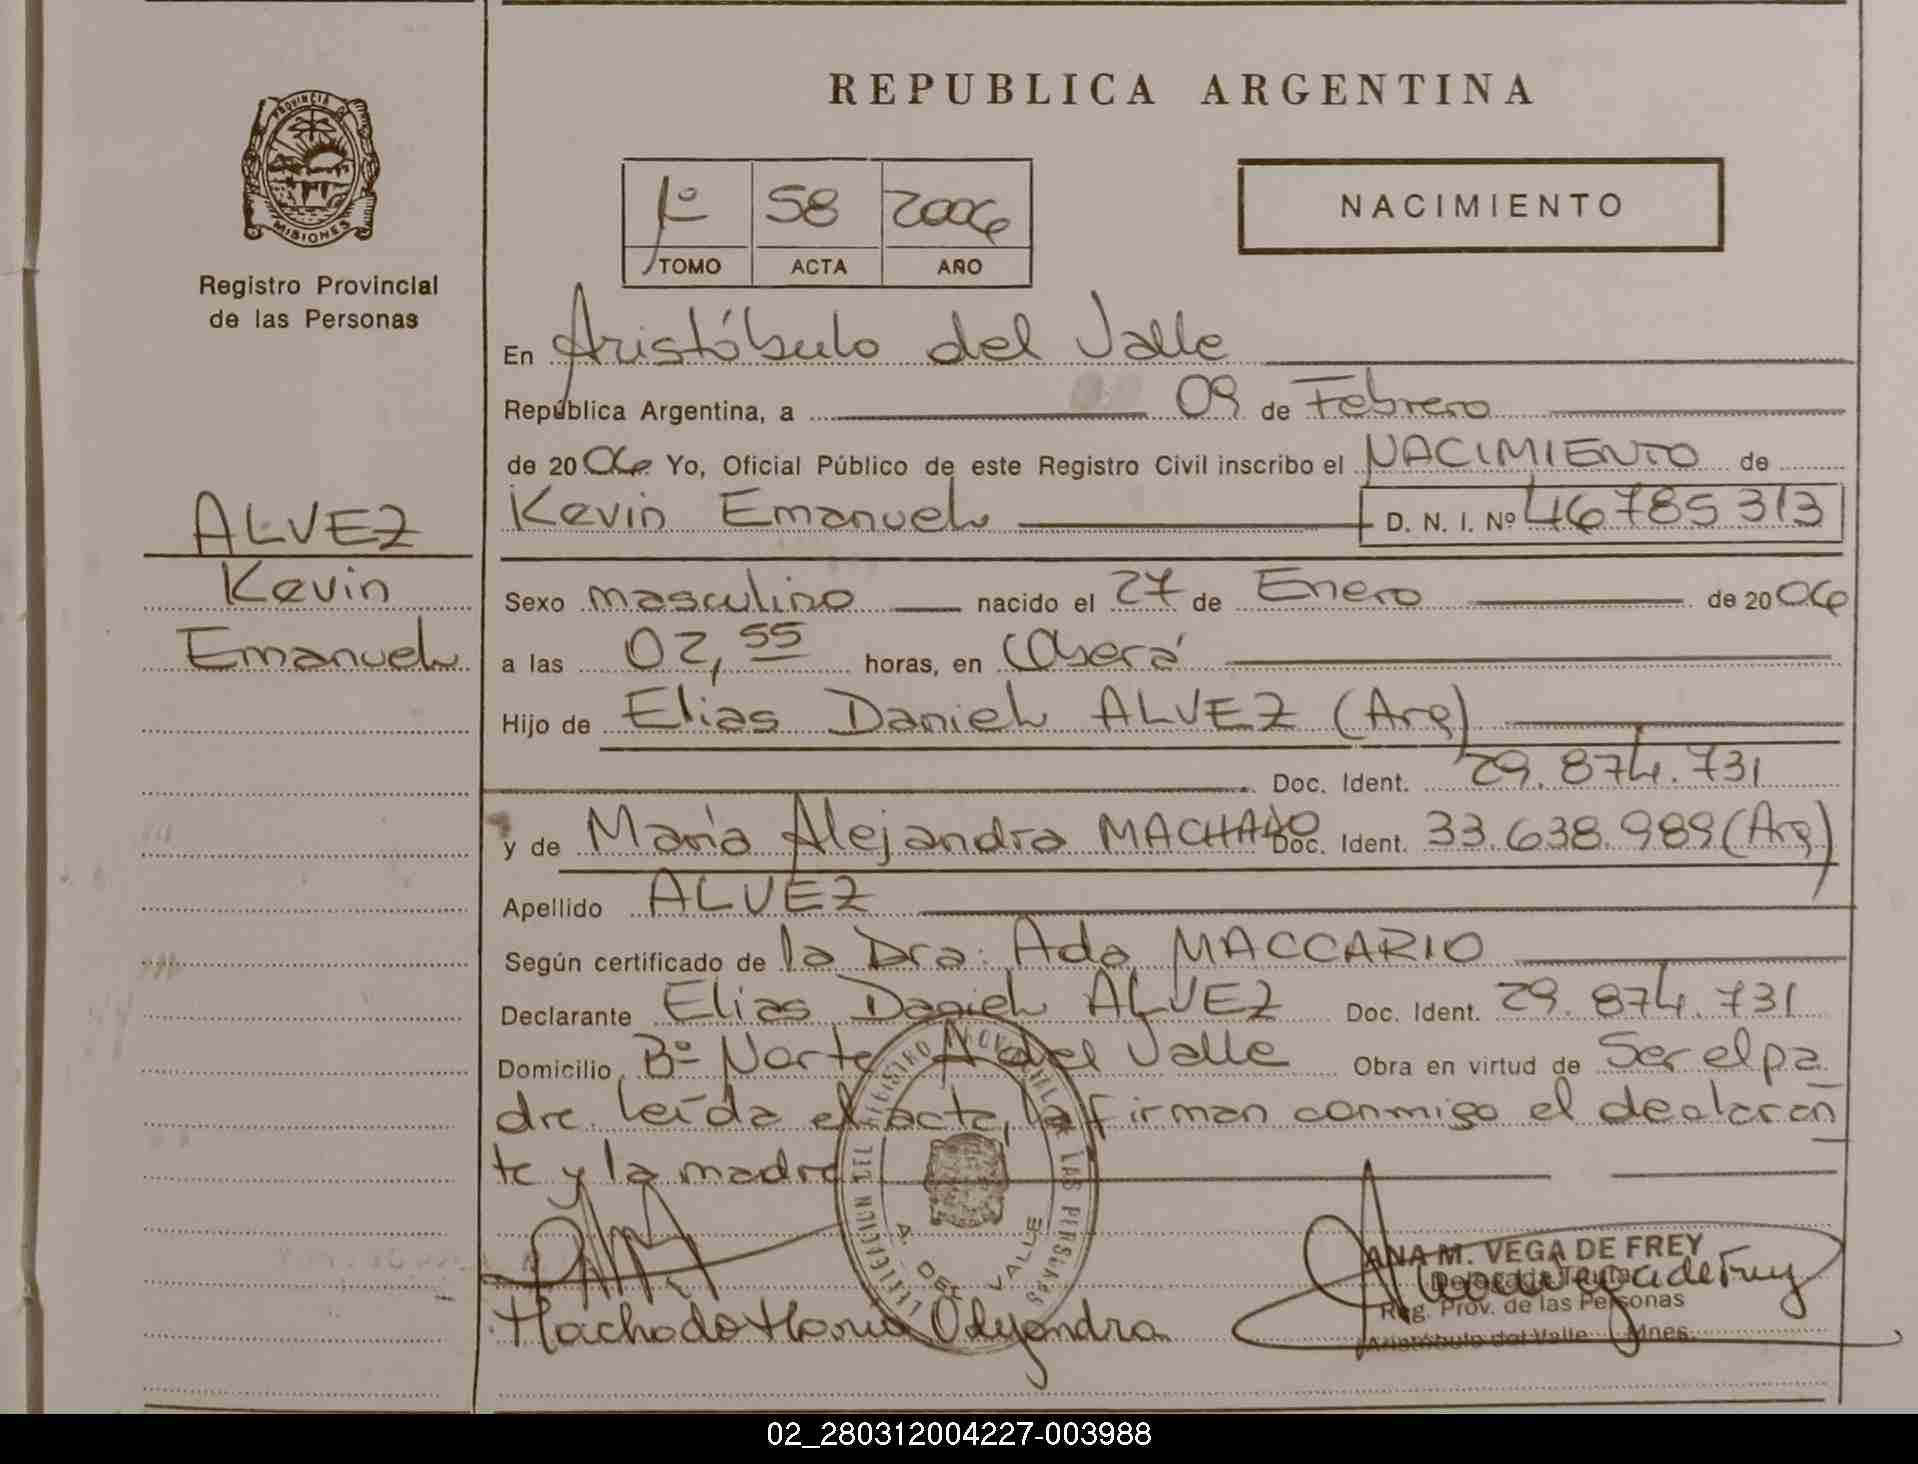 REPUBLICA ARGENTINA
PROVINCIA DE
MISIONES
Registro Provincial
de las Personas
1º 58 2006
TOMO ACTA AÑO
NACIMIENTO
En Aristóbulo del Valle
República Argentina, a 09 de Febrero
de 2006 Yo, Oficial Público de este Registro Civil inscribo el NACIMIENTO de
ALVEZ
Kevin
Emanuel
Kevin Emanuel D. N. I. Nº 46785313
Sexo masculino nacido el 27 de Enero de 2006
a las 02,55 horas, en Oberá
Hijo de Elias Daniel ALVEZ (Arg)
Doc. Ident. 29.874.731
y de María Alejandra MACHADO Doc. Ident. 33.638.989 (Arg)
Apellido ALVEZ
Según certificado de la Dra: Ada MACCARIO
Declarante Elias Daniel ALVEZ Doc. Ident. 29.874.731
Domicilio Bº Norte A del Valle Obra en virtud de Ser el pa
dre. leída el acta, la firman conmigo el declaran
te y la madre
A. DEL VALLE
ANA M. VEGA DE FREY
Reg. Prov. de las Personas
Aristóbulo del Valle Mnes.
Machado María Alejandra
02_280312004227-003988